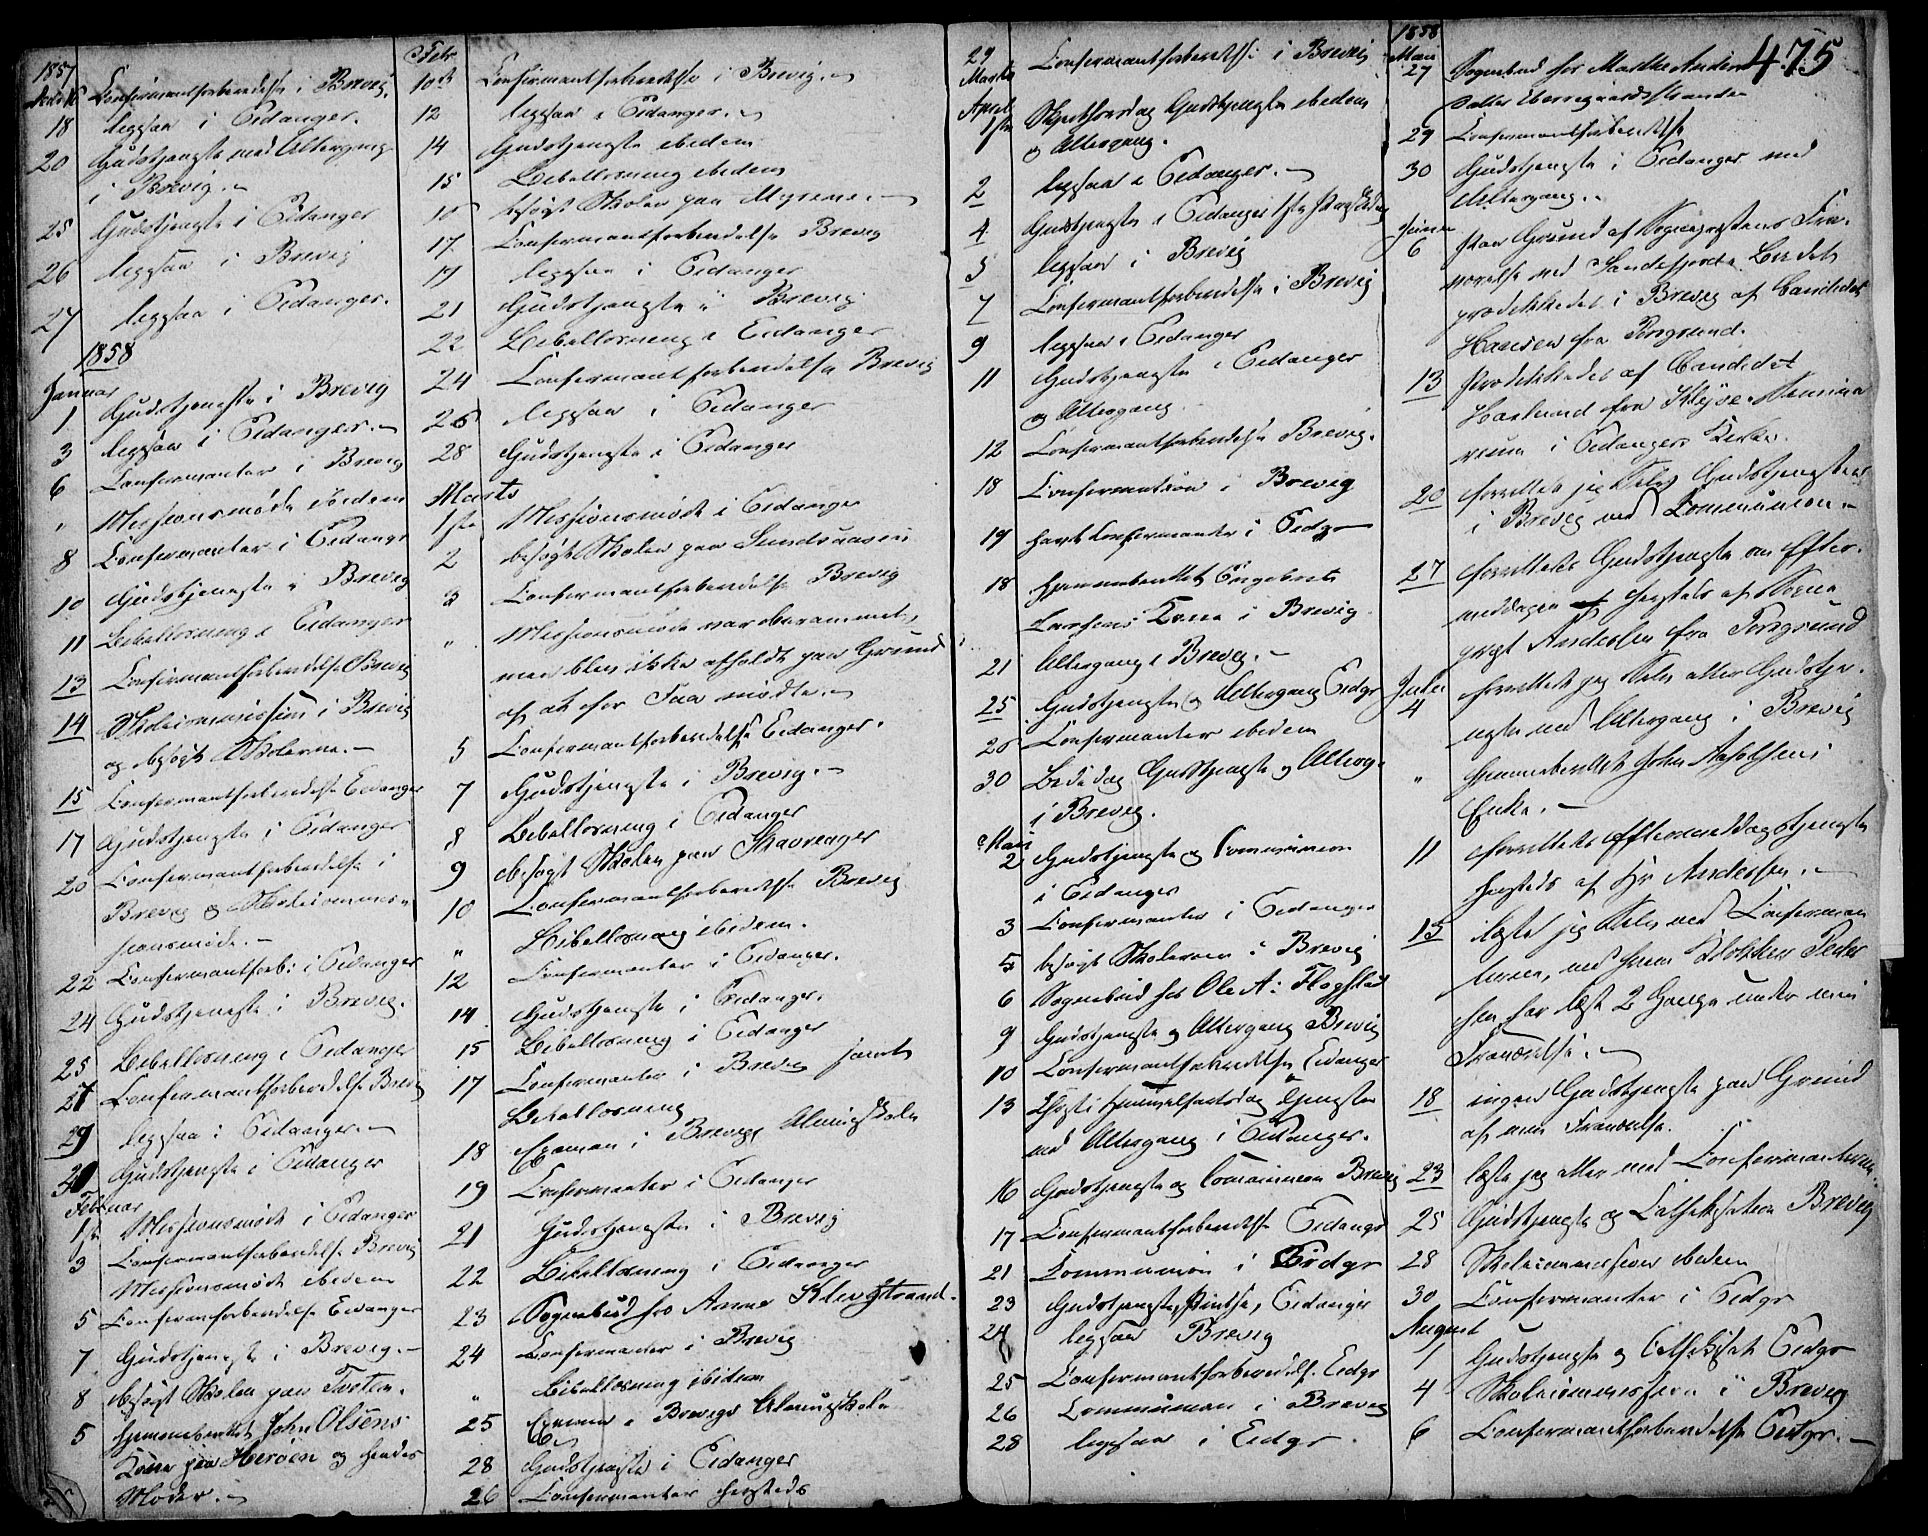 1857
Decb 16 Confirmantforberedelse i Brevig.
18 ligesaa i Eidanger.
20 Gudstjeneste med Altergang
i Brevig.
25 Gudstjeneste i Eidanger
26 ligesaa i Brevig
27 ligesaa i Eidanger.
1858
Januar
1 Gudstjeneste i Brevig
3 ligesaa i Eidanger.
6 Confirmanter i Brevig
" Missionsmøde ibidem
8 Confirmanter i Eidangr
10 Gudstjeneste i Brevig
11 Bibellæsning i Eidanger
13 Confirmantforberedelse Brevig
14 Skolecommission i Brevig
og besøgt Skolerne.
15 Confirmantforberedelse Eidanger
17 Gudstjeneste i Eidanger
20 Confirmantforberedelse i
Brevig og Skolecommis=
sionsmøde.
22 Confirmantforb: i Eidanger
24 Gudstjeneste i Brevig.
25 Bibellæsning i Eidanger
27 Confirmantforberedelse Brevig
29 ligesaa i Eidanger.
31 Gudstjeneste i Eidanger
Februar
1ste Missionsmøde i Eidanger
3 Confirmantforberedelse Brevig
Missionsmøde ibidem
5 Confirmantforberedelse Eidanger
7 Gudstjeneste i Brevig.
8 besøgt Skolen paa
5 hjemmeberettet John Olsens
Kone paa Herøen og hendes
Moder.
Febr
10de Confirmantforberedelse i Brevig.
12 ligesaa i Eidanger.
14 Gudstjeneste ibidem
15 Bibellæsning ibidem
16 besøgt Skolen paa Myrene.
17 Confirmantforberedelse Brevig
19 ligesaa i Eidanger
21 Gudstjeneste i Brevig
22 Bibellæsning i Eidanger
24 Confirmantforberedelse Brevig
26 ligesaa i Eidanger
28 Gudstjeneste i Eidanger
Marts
1ste Missionsmøde i Eidanger
2 besøgt Skolen paa Sundsaasen
3 Confirmantforberedelse Brevig
" Missionsmøde var berammet,
men blev ikke afholdt paa Grund
af at for Faa mødte.
5 Confirmantforberedelse Eidanger.
7 Gudstjeneste i Brevig.
8 Bibellæsning i Eidanger
9 besøgt Skolen paa Skavrager
10 Confirmantforberedelse Brevig
" Bibellæsning ibidem.
12 Confirmanter i Eidanger.
14 Gudstjeneste i Eidanger.
15 Bibellæsning i Eidanger
17 Confirmanter i Brevig samt
Bibellæsning
18 Examen i Brevigs Almueskole
19 Confirmanter i Eidanger
21 Gudstjeneste i Brevig
22 Bibellæsning i Eidanger
23 Sognebud hos Anne Klevstrand.
24 Confirmanter i Brevig
" Bibellæsning ibidem
25 Examen i Brevigs Almueskole
28 Gudstjeneste i Eidanger
26 Confirmanter sammesteds
29
Marts Confirmantforberedelse i Brevig
April
1ste Skjertorsdag Gudstjeneste ibidem
og Altergang.
2 ligesaa i Eidanger.
4 Gudstjeneste i Eidanger 1ste Paaskedag
5 ligesaa i Brevig
7 Confirmantforberedelse i Brevig
9 ligesaa i Eidanger
11 Gudstjeneste i Eidanger
og Altergang.
12 Confirmantforberedelse Brevig.
18 Confirmation i Brevig
19 havt Confirmanter i Eidgr
18 hjemmeberettet Engebret
Larsens Kone i Brevig
21 Altergang i Brevig.
25 Gudstjeneste og Altergang Eidgr
26 Confirmanter ibidem
30 Bededag Gudstjeneste og Alterg.
i Brevig.
Mai
2 Gudstjeneste og Communion
i Eidanger
3 Confirmanter i Eidanger
5 besøgt Skolerne i Brevig
6 Sognebud hos Ole A: Flogstad
9 Gudstjeneste og Altergang Brevig
10 Confirmantforberedelse Eidanger
13 Christi Himmelfartsdag Tjeneste
med Altergang i Eidanger.
16 Gudstjeneste og Communion Brevig
17 Confirmantforberedelse Eidangr
21 Communion i Eidgr
23 Gudstjeneste, Pintse, Eidanger
24 ligesaa Brevig
25 Confirmantforberedelse Eidgr
26 Communion i Brevig
28 ligesaa i Eidgr.
475
1858
Mai
27 Sognebud hos Marthe Anders
datter
29 Confirmantforberedelse
30 Gudstjeneste i Eidanger med
Altergang.
Juni
6 paa Grund af Sognepræstens Fra=
værelse ved Sandefjords Badet
prædikkedes i Brevig af Candidat
Hansen fra Porsgrund.
13 prædikkedes af Candidat
Haslund fra Seminarium
i Eidangers Kirke.
20 forrettet jeg selv Gudstjenesten
i Brevig med Communion.
27 forrettedes Gudstjeneste om Efter=
middagen sammesteds af Sogne
præst Andersen fra Porsgrund
Juli
4 forrettet jeg selv atter Gudstje=
neste med Altergang i Brevig
" hjemmeberettet John Aslaksens
Enke.
11 forrettedes Eftermiddagstjeneste
sammesteds af Hr Andersen.
15 læste jeg selv med Confirman
terne, med hvem Klokker Peder
sen har læst 2 Gange under min
Fraværelse.
18 ingen Gudstjeneste paa Grund
af min Fraværelse.
23 læste jeg atter med Confirmanterne
25 Gudstjeneste og Cathekisation Brevig
28 Skolecommission ibidem
30 Confirmanter i Eidgr
August
1 Gudstjeneste og Cathekisat Eidgr
4 Skolecommission i Brevig
6 Confirmantforberedelse Eidgr.